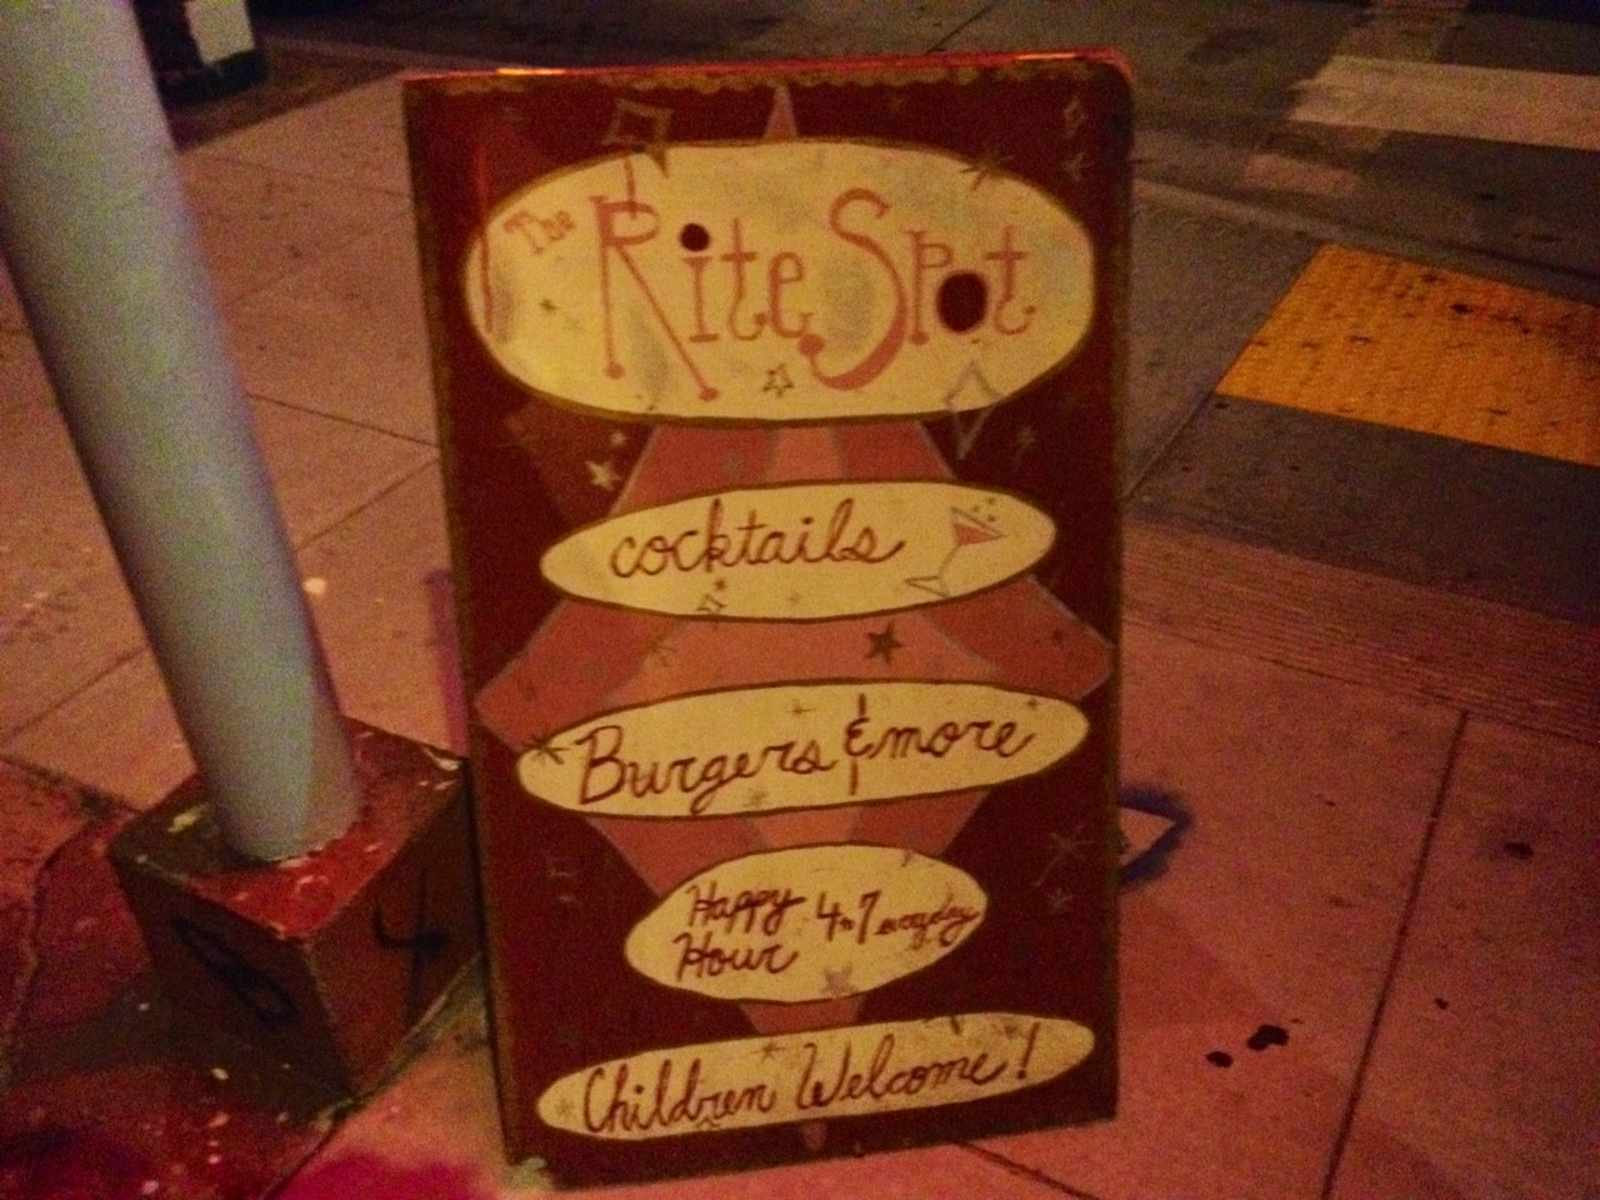 The Rite Spot
cocktails
Burgers & more
Happy
Hour 4 to 7 everyday
Children Welcome!